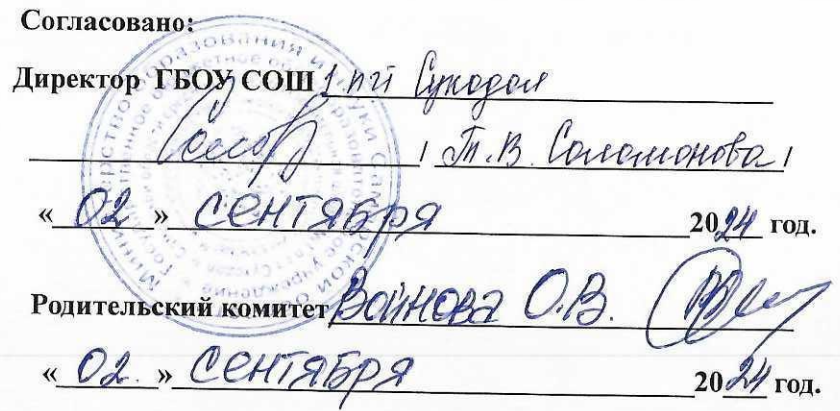 Согласовано:
Директор ГБОУ СОШ 1 пгт Суходол
/ Т.В. Соломонова /
« 02 » сентября 2024 год.
Родительский комитет Воинова О.В.
« 02. » сентября 2024 год.